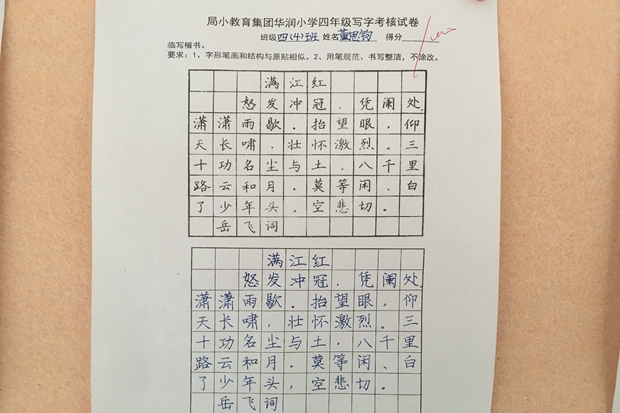 局小教育集团华润小学四年级写字考核试卷
班级四(4)班 姓名董思钧 得分
临写楷书。
要求：1、字形笔画和结构与原贴相似。2、用笔规范、书写整洁，不涂改。
满江红
怒发冲冠，凭阑处
潇潇雨歇。抬望眼，仰
天长啸，壮怀激烈。三
十功名尘与土，八千里
路云和月。莫等闲、白
了少年头，空悲切。
岳飞词
满江红
怒发冲冠，凭阑处
潇潇雨歇。抬望眼，仰
天长啸，壮怀激烈。三
十功名尘与土，八千里
路云和月。莫等闲、白
了少年头，空悲切。
岳飞词